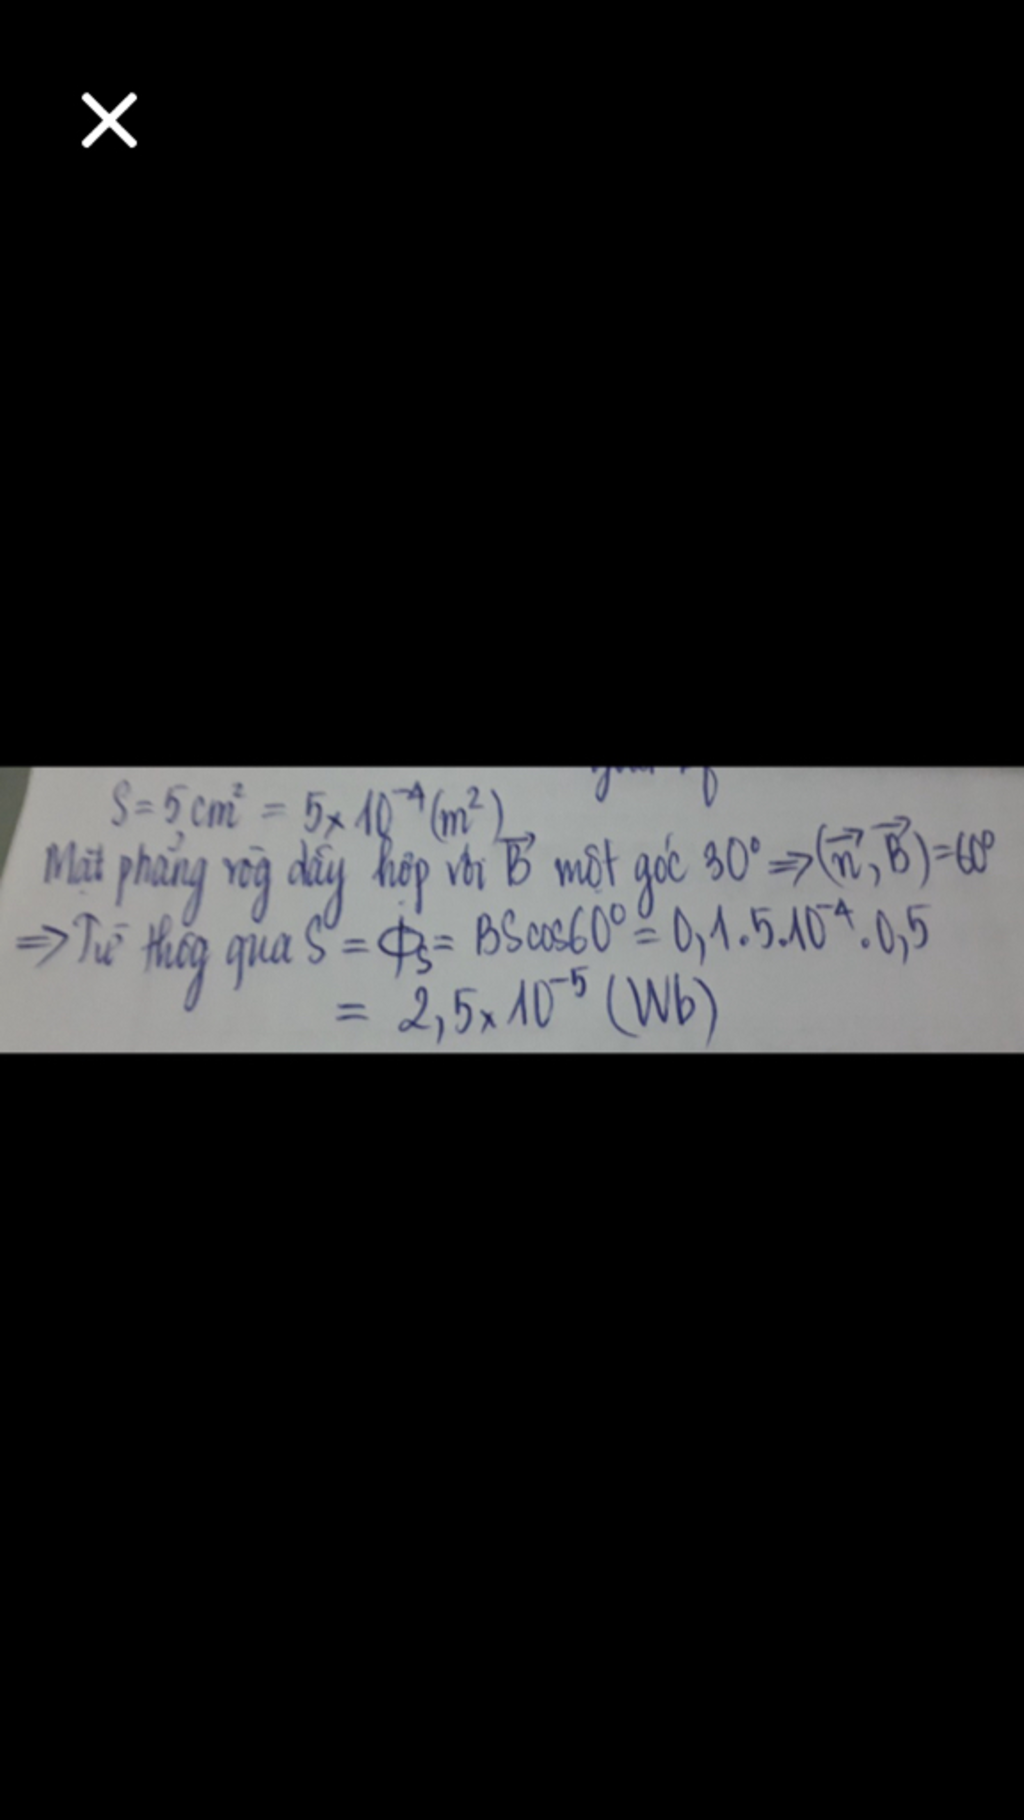 S = 5 cm² = 5 x 10⁻⁴ (m²)
Mặt phẳng vòg dây hợp với B⃗ một góc 30° => (n⃗, B⃗) = 60°
=> Từ thôg qua S = Φs = BScos60° = 0,1.5.10⁻⁴.0,5
= 2,5 x 10⁻⁵ (Wb)